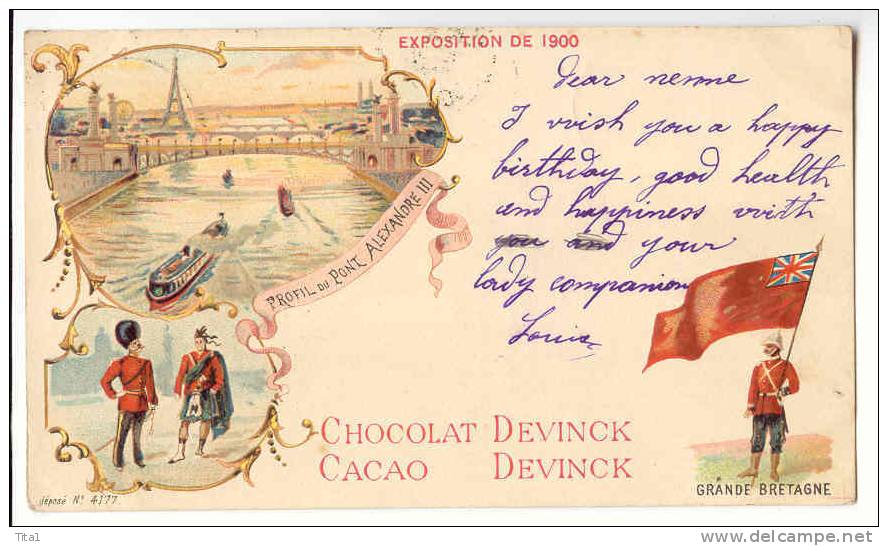 EXPOSITION DE 1900
Dear nenne
I wish you a happy
birthday, good health
and happiness with
you and your
lady companion
Louis
PROFIL DU PONT ALEXANDRE III
CHOCOLAT DEVINCK
CACAO DEVINCK
GRANDE BRETAGNE
déposé No 4177
Tita1
www.delcampe.net